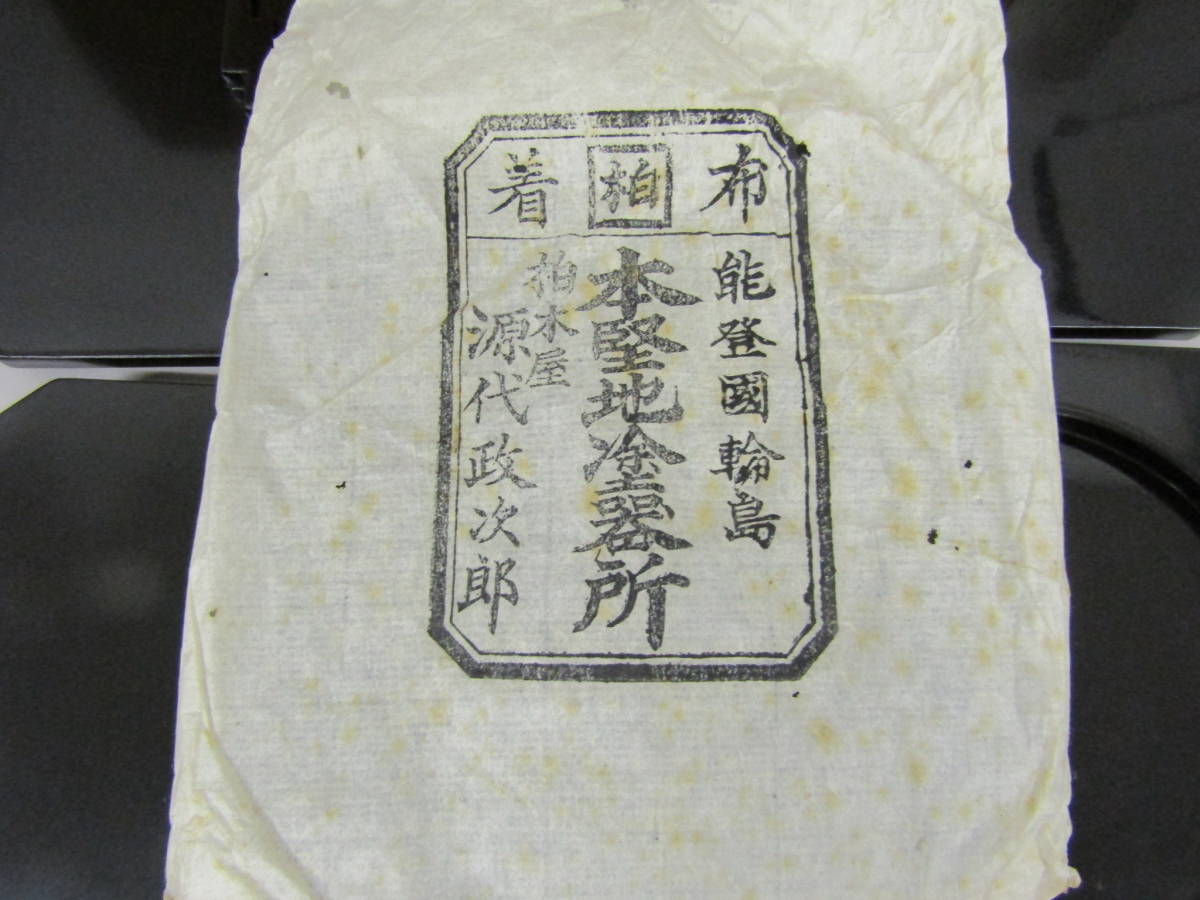 布 柏 着
能登國輪島
本堅地塗器所
柏木屋
源代政次郎